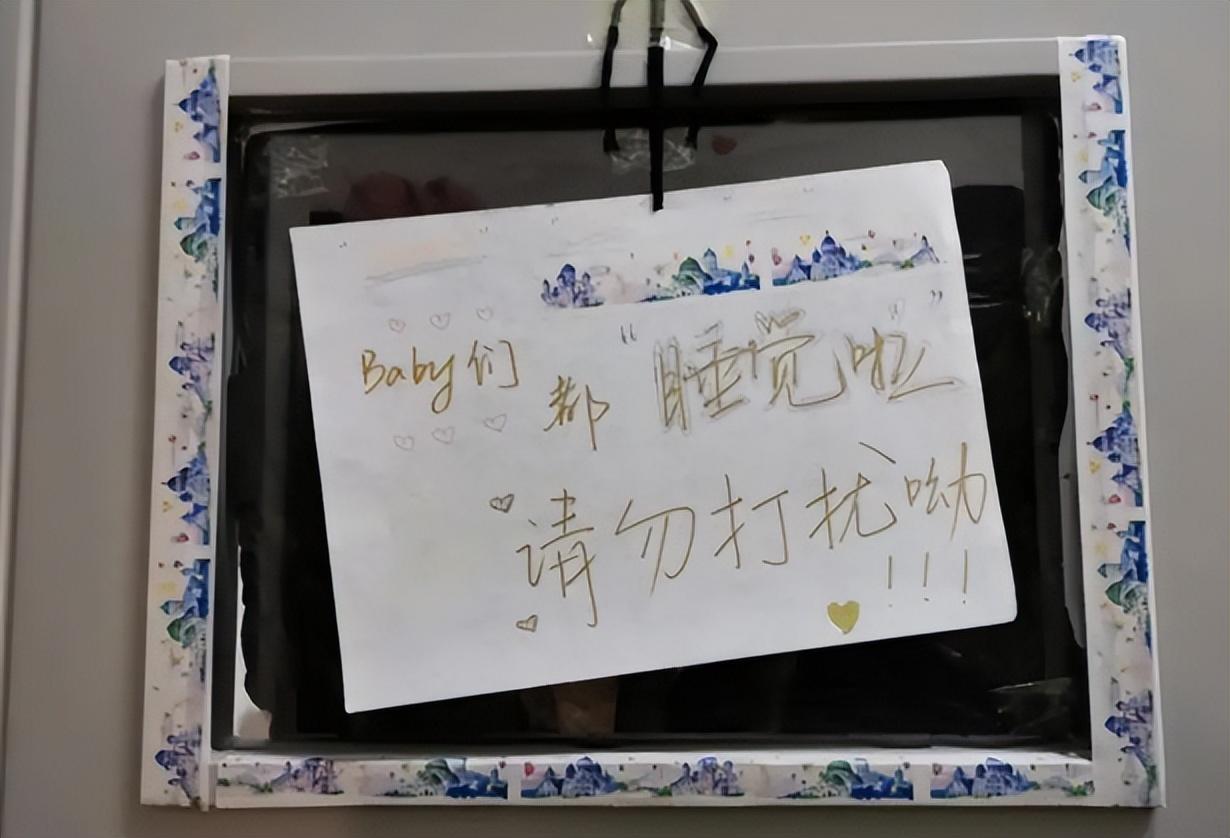 Baby们都“睡觉啦”
请勿打扰呦
!!!